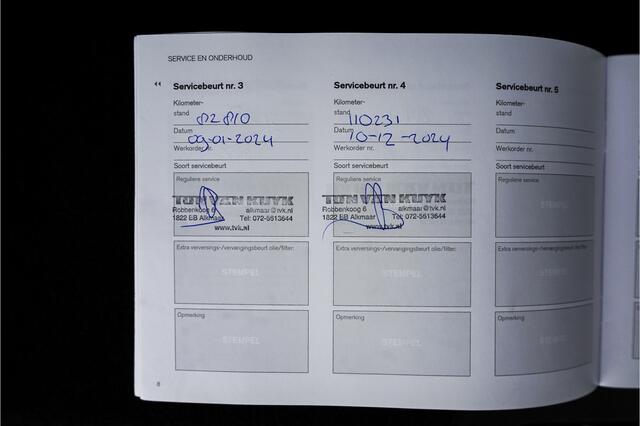 SERVICE EN ONDERHOUD
Servicebeurt nr. 3
Kilometer-
stand 82810
Datum 09-01-2024
Werkorder nr.
Soort servicebeurt
Reguliere service
TON VAN KUYK
Robbenkoog 6 alkmaar@tvk.nl
1822 EB Alkmaar Tel: 072-5613644
www.tvk.nl
Extra verversings-/vervangingsbeurt olie/filter:
STEMPEL
Opmerking
STEMPEL
Servicebeurt nr. 4
Kilometer-
stand 110231
Datum 10-12-2024
Werkorder nr.
Soort servicebeurt
Reguliere service
TON VAN KUYK
Robbenkoog 6 alkmaar@tvk.nl
1822 EB Alkmaar Tel: 072-5613644
www.tvk.nl
Extra verversings-/vervangingsbeurt olie/filter:
STEMPEL
Opmerking
STEMPEL
Servicebeurt nr. 5
Kilometer-
stand
Datum
Werkorder nr.
Soort servicebeurt
Reguliere service
STEMPEL
Extra verversings-/vervangingsbeurt olie/filter:
STEMPEL
Opmerking
STEMPEL
8